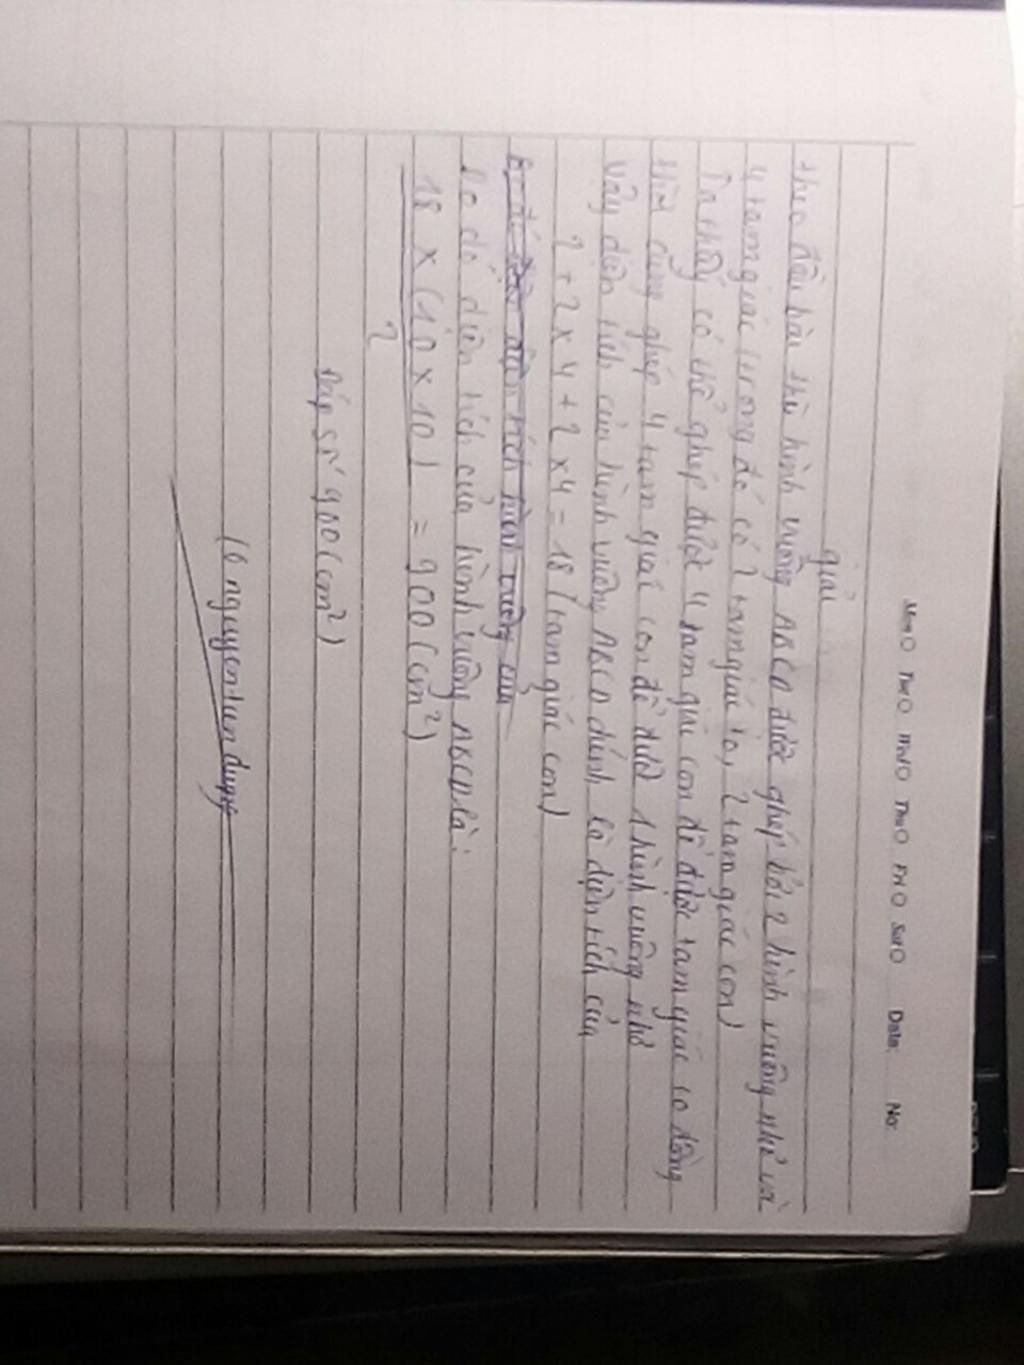 Mon Tue Wed Thu Fri Sat Date: No:
giải
theo đầu bài thì hình vuông ABCD được ghép bởi 2 hình vuông nhỏ và
4 tam giác (trong đó có 2 tam giác to, 2 tam giác con)
Ta thấy có thể ghép được 4 tam giác con để được tam giác to đồng
thời cũng ghép 4 tam giác con để được 1 hình vuông nhỏ
vậy diện tích của hình vuông ABCD chính là diện tích của
2 + 2 x 4 + 2 x 4 = 18 (tam giác con)
diện tích hình vuông của
Do đó diện tích của hình vuông ABCD là:
18 x (10 x 10) = 900 (cm²)
2
Đáp số 900 (cm²)